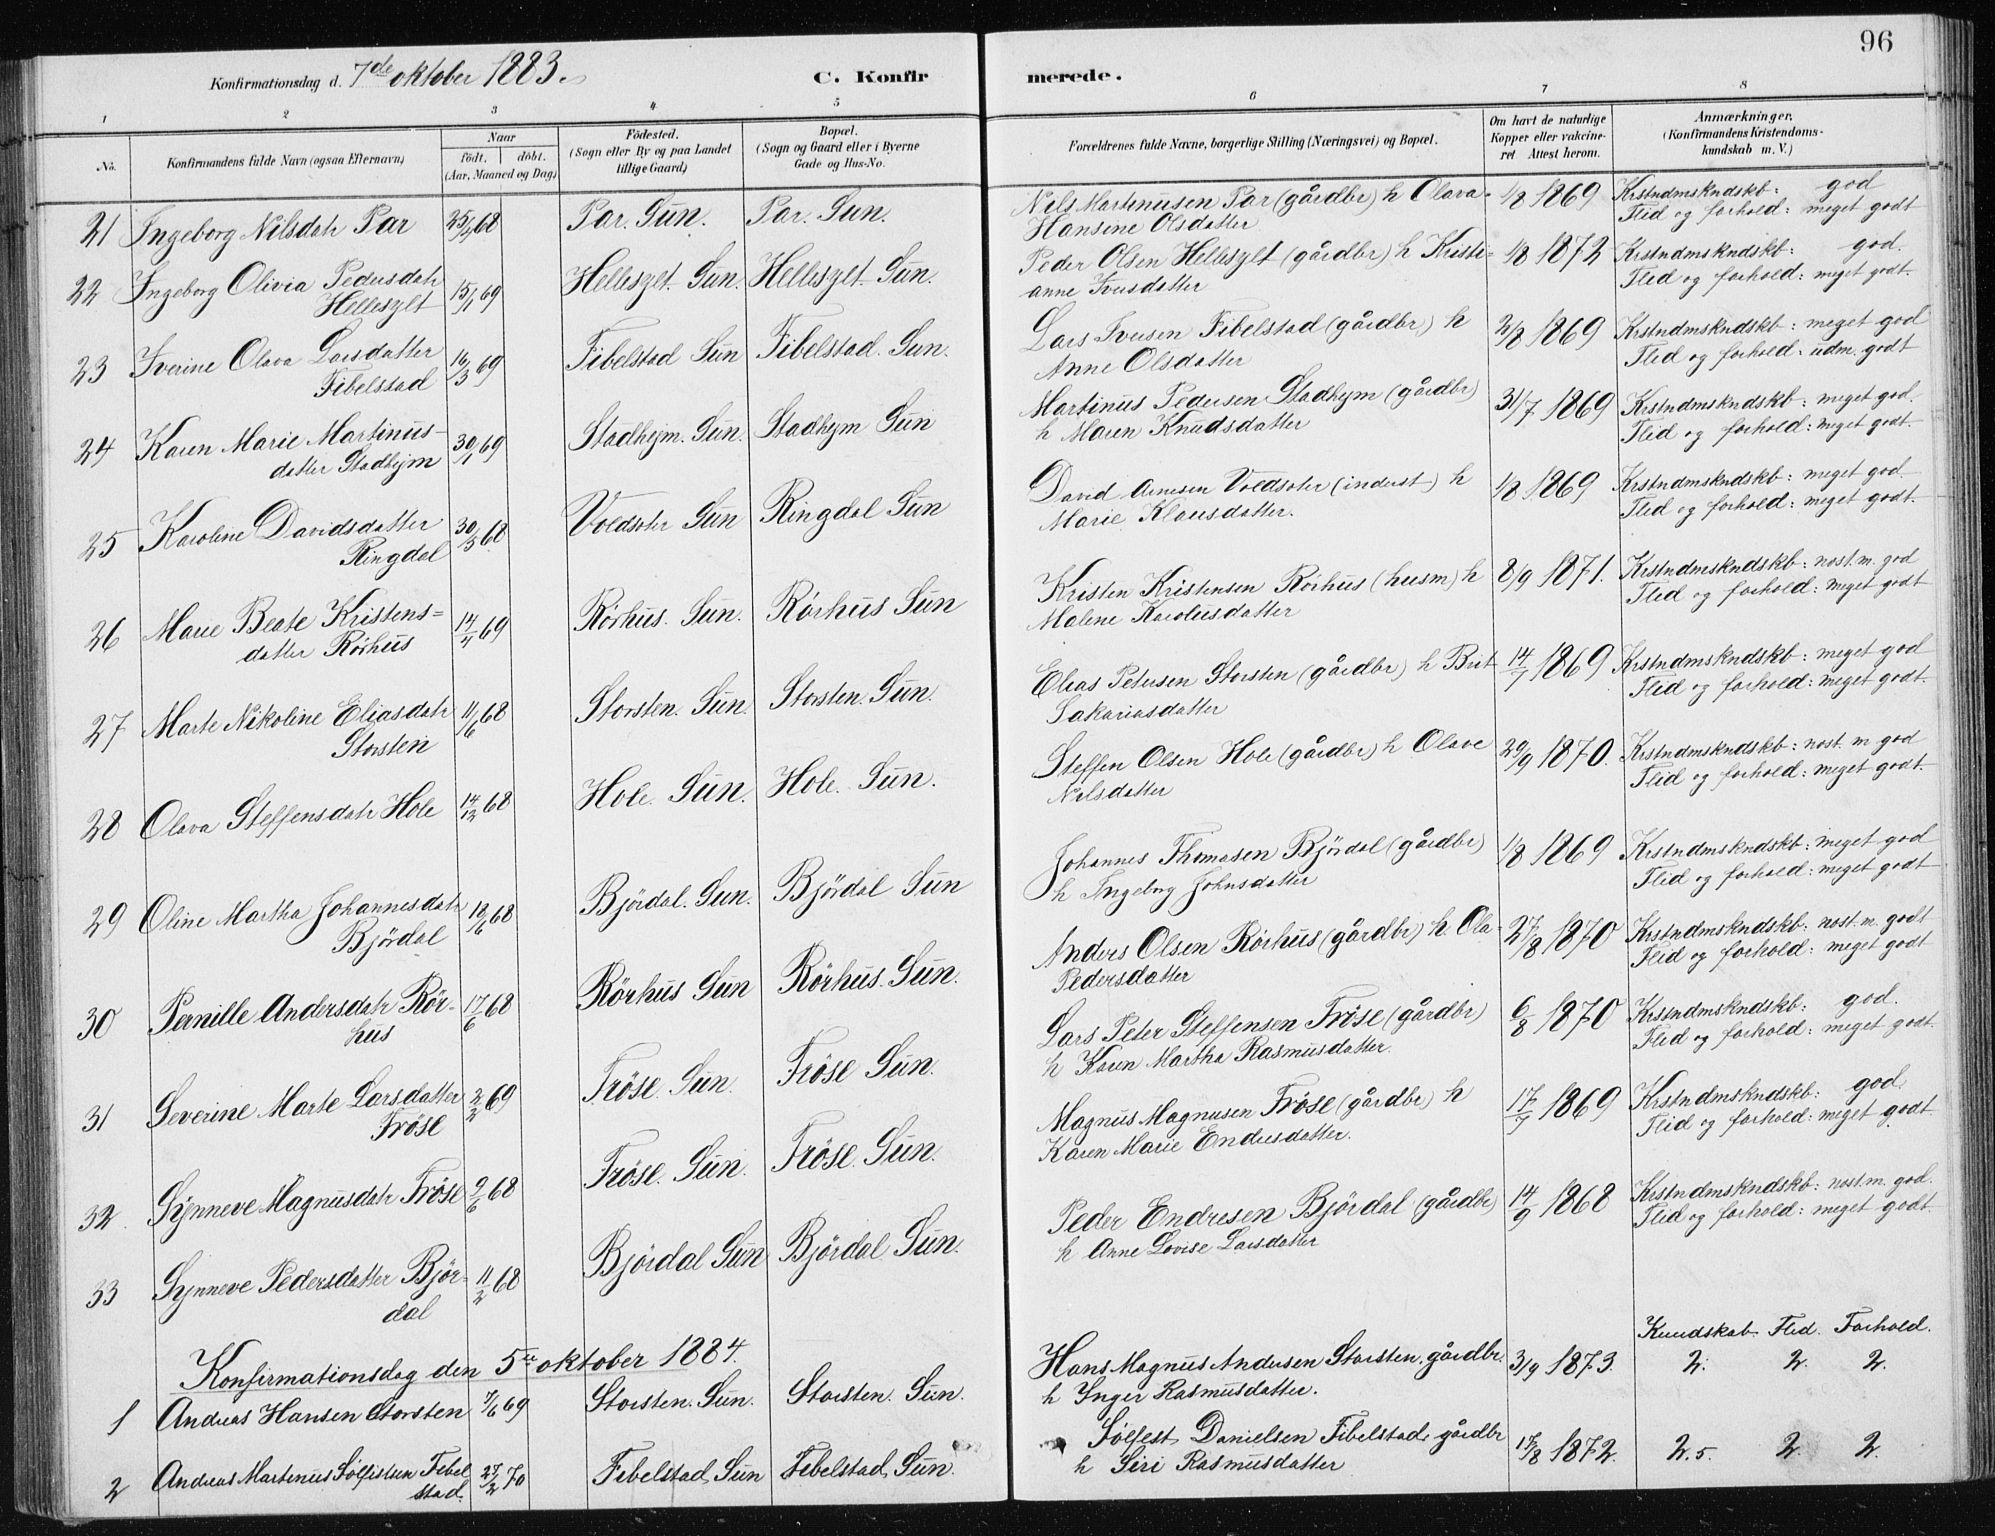 96
Konfirmationsdag d. 7de oktober 1883.
C. Konfirmerede.
1 2 3 4 5 6 7 8
No. Konfirmandens fulde Navn (ogsaa Efternavn) Naar født. døbt. (Aar, Maaned og Dag) Fødested. (Sogn eller By og paa Landet tillige Gaard) Bopæl. (Sogn og Gaard eller i Byerne Gade og Hus-No. Forældrenes fulde Navne, borgerlige Stilling (Næringsvei) og Bopæl. Om havt de naturlige Kopper eller vakcineret Attest herom. Anmærkninger. (Konfirmandens Kristendomskundskab m. V.)
21 Ingeborg Nilsdatr Par 25/4 68 Par. Sun. Par. Sun. Nils Martinusen Par (gårdbr) h Olava 1/8 1869 Krstndmskndskb: god
Hansine Olsdatter Flid og forhold: meget godt
22 Ingeborg Olivia Pedersdatr 15/1 69 Hellesylt. Sun. Hellesylt. Sun. Peder Olsen Hellesylt (gårdbr) h Kristi- 1/8 1872 Krstndmskndskb: god.
Hellesylt anne Iversdatter Flid og forhold: meget godt.
23 Iverine Olava Larsdatter 16/3 69 Fibelstad Sun Fibelstad. Sun. Lars Iversen Fibelstad (gårdbr) h 2/8 1869 Krstndmskndskb: meget god
Fibelstad Anne Olsdatter Flid og forhold: udm. godt
24 Karen Marie Martinus- 30/1 69 Stadhejm. Sun. Stadhejm Sun Martinus Pedersen Stadhejm (gårdbr) 31/7 1869 Krstndmskndskb: meget god.
datter Stadhejm h Maren Knudsdatter Flid og forhold: meget godt.
25 Karoline Davidsdatter 30/3 68 Voldsæter Sun Ringdal Sun David Arnesen Voldsæter (inderst) h 1/8 1869 Krstndmskndskb: meget god
Ringdal Marie Klausdatter. Flid og forhold: meget godt.
26 Marie Beate Kristens= 14/4 69 Rörhus. Sun. Rörhus Sun Kristen Kristensen Rörhus (husm) h 8/9 1871. Krstndmskndskb: nost. m. god
datter Rörhus Malene Karolusdatter Flid og forhold: meget godt
27 Marte Nikoline Eliasdatr 11/6 68 Storsten. Sun. Storsten. Sun. Elias Petersen Storsten (gårdbr) h Brit 14/7 1869 Krstndmskndskb: meget god
Storsten Sakariasdatter Flid og forhold: meget godt.
28 Olava Steffensdatr Hole 14/12 68 Hole. Sun. Hole. Sun. Steffen Olsen Hole (gårdbr) h Olave 29/9 1870. Krstndmskndskb: nost. m god
Nilsdatter Flid og forhold: meget godt.
29 Oline Martha Johannesdatr 18/6 68 Björdal. Sun. Björdal Sun Johannes Thomasen Björdal (gårdbr) 1/8 1869 Krstndmskndskb: meget god
Björdal h Ingeborg Johnsdatter Flid og forhold: meget godt
30 Pernille Andersdatr Rör- 17/6 68 Rörhus Sun Rörhus. Sun. Anders Olsen Rörhus (gårdbr) h. Ola- 27/8 1870 Krstndmskndskb: nost. m. godt
hus Pedersdatter Flid og forhold: meget godt
31 Severine Marte Larsdatter 2/2 69 Fröse. Sun. Fröse Sun. Lars Peter Steffensen Fröse (gårdbr) 6/8 1870 Krstndmskndskb: god.
Fröse h Karen Martha Rasmusdatter. Flid og forhold: meget godt.
32 Synneve Magnusdatr Fröse 9/6 68 Fröse. Sun. Fröse. Sun. Magnus Magnusen Fröse (gårdbr) h 17/7 1869 Krstndmskndskb: god.
Karen Marie Endresdatter. Flid og forhold: meget godt
33 Synneve Pedersdatter Björ- 11/2 68 Björdal Sun Björdal Sun. Peder Endresen Björdal (gårdbr) 14/9 1868 Krstndmskndskb: nost. m. god.
dal h Anne Lovise Larsdatter Flid og forhold: meget godt.
Konfirmationsdag den 5te oktober 1884. Kundskab. Flid. Forhold.
1 Andreas Hansen Storsten 7/6 69 Storsten. Sun. Storsten. Sun. Hans Magnus Andersen Storsten. gårdbr. 3/9 1873. 2. 2. 2.
h Inger Rasmusdatter.
2 Andreas Martinus Sølfestsen Fibel 27/2 70 Fibelstad Sun Fibelstad Sun. Sølfest Danielsen Fibelstad, gårdbr 17/8 1872. 2.5 2 2.
stad. h Siri Rasmusdatter